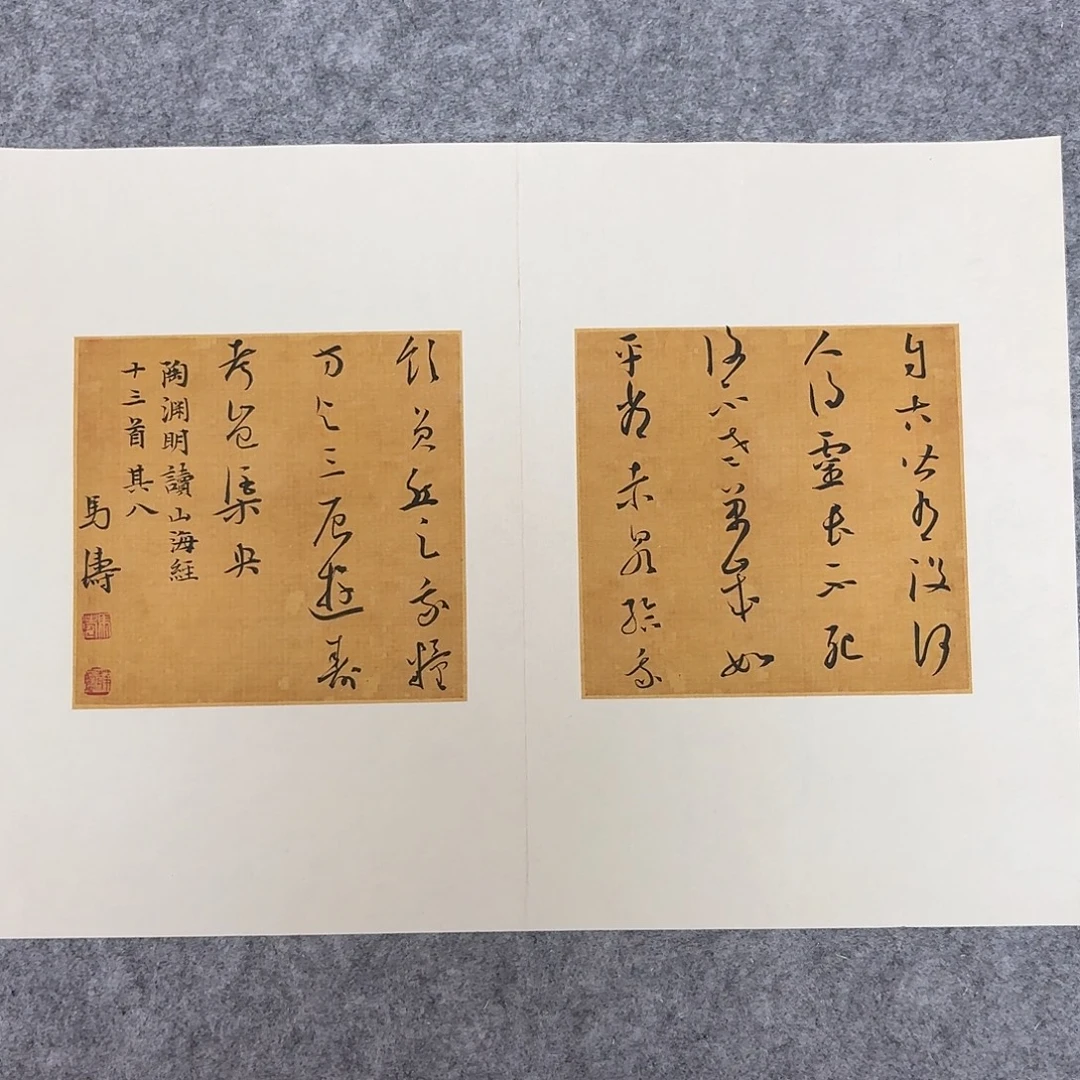 自古皆有沒何
人得靈長不死
復不老萬歲如
平常赤泉給我
飲員丘足我糧
方與三辰遊壽
考豈渠央
陶淵明讀山海經
十三首其八
馬濤